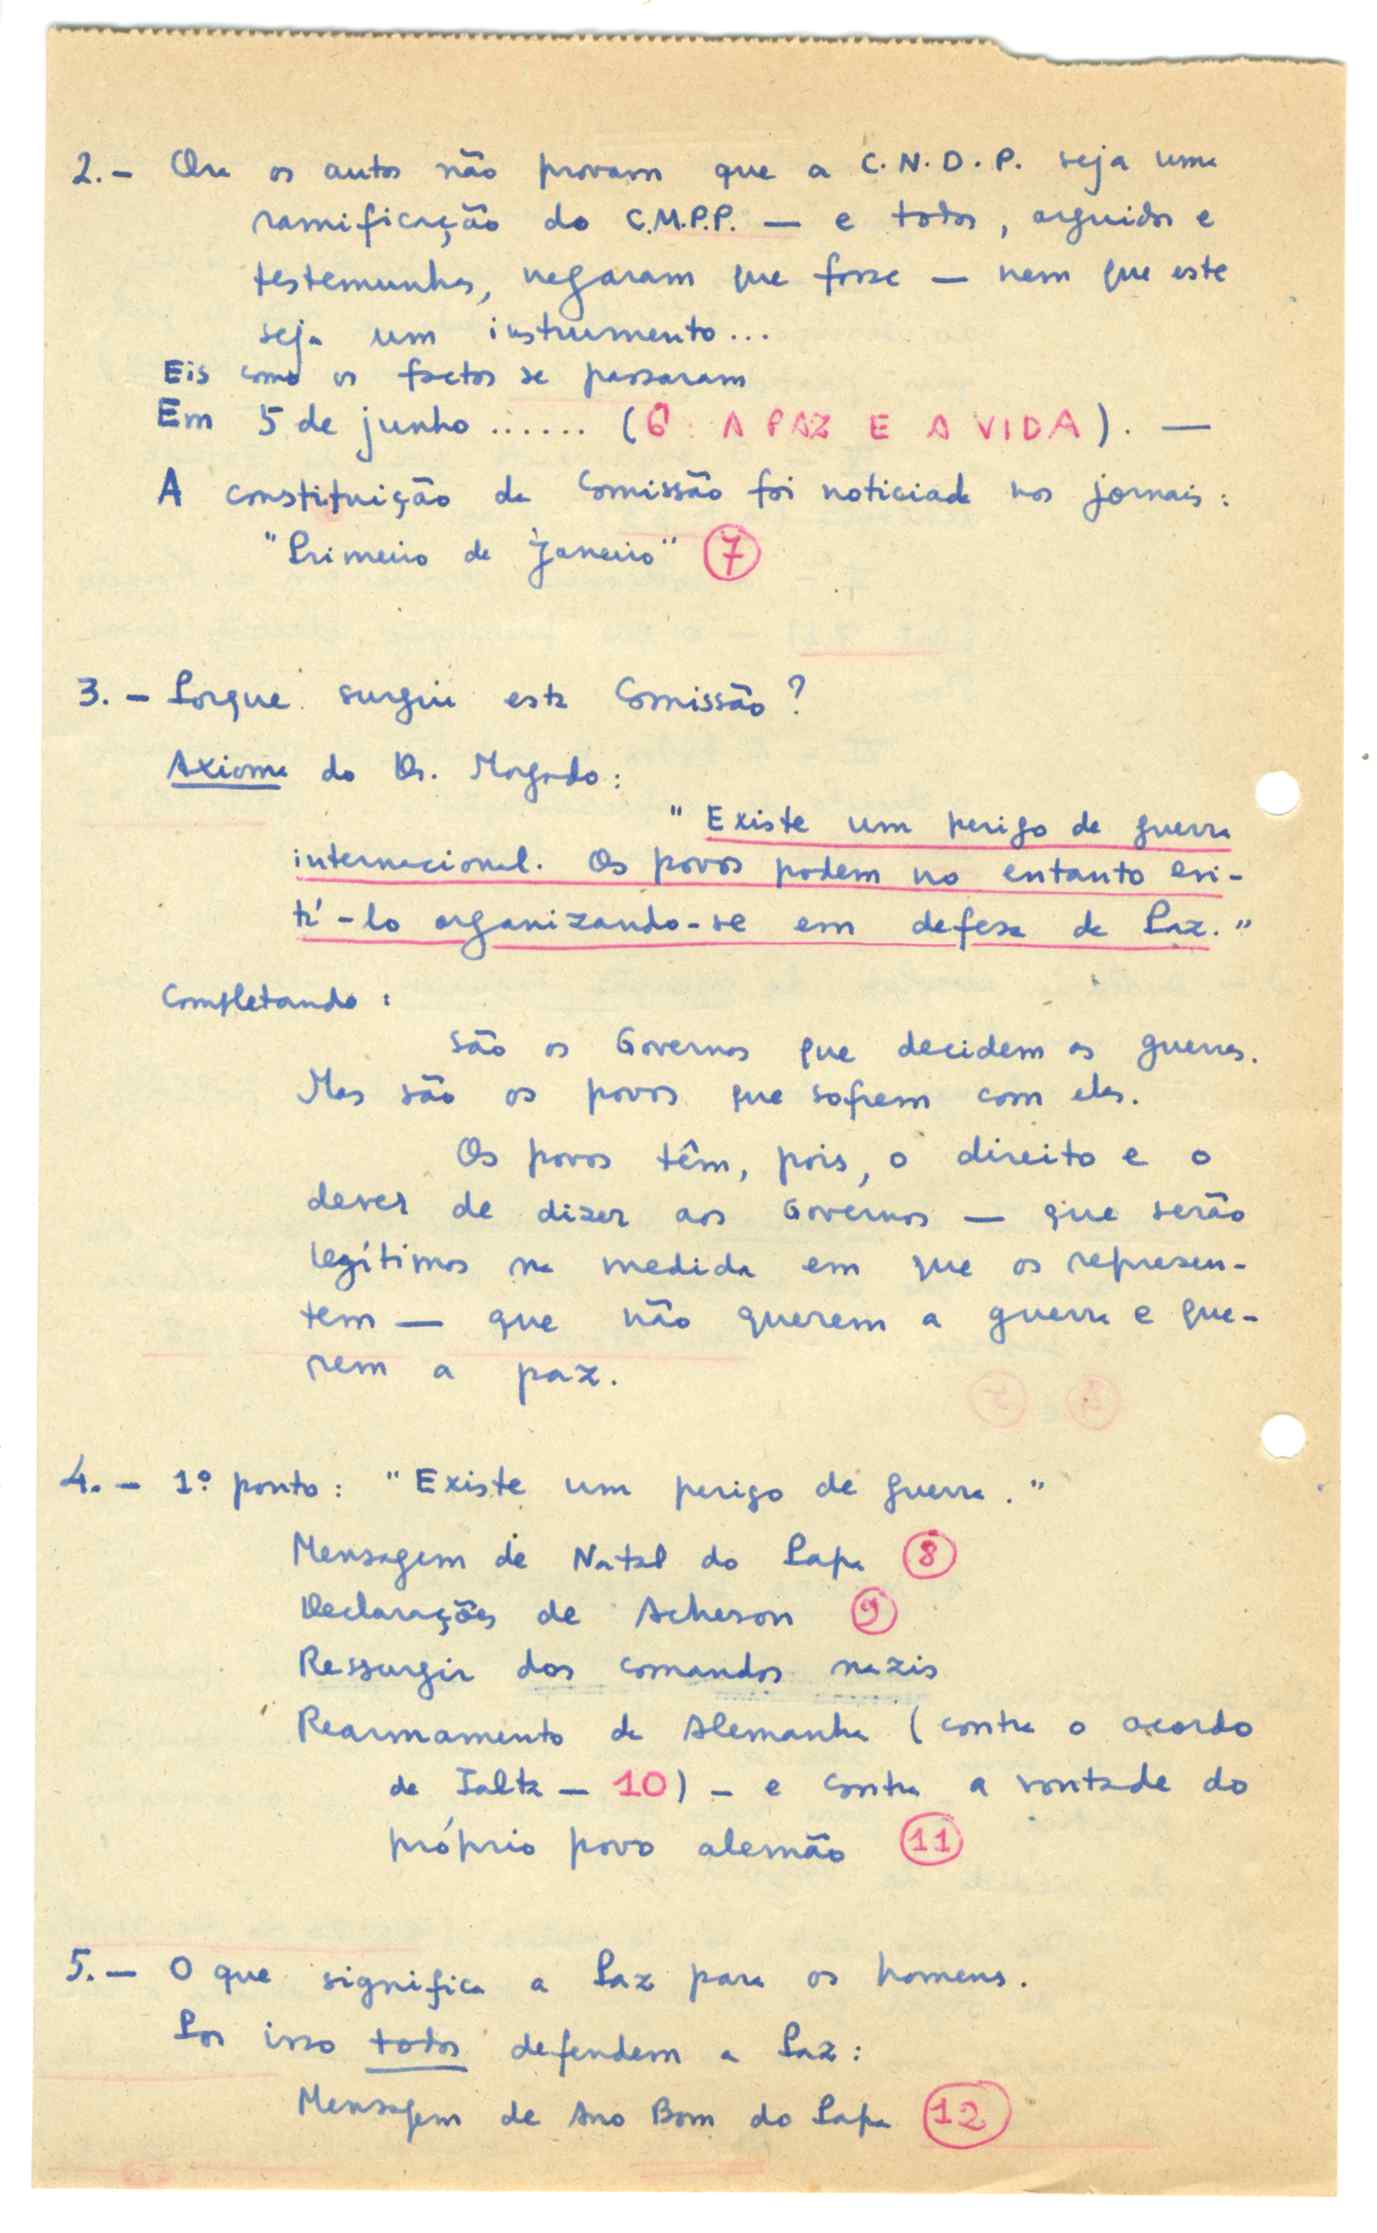 2. - Ora os autos não provam que a C.N.D.P. seja uma
ramificação do C.M.P.P. — e todos, arguidos e
testemunhas, negaram que fosse — nem que este
seja um instrumento...
Eis como os factos se passaram
Em 5 de junho ...... (6 : A PAZ E A VIDA). —
A constituição da Comissão foi noticiada nos jornais:
"Primeiro de Janeiro" 7
3. - Porque surgiu esta Comissão?
Axioma do Dr. Morgado:
"Existe um perigo de guerra
internacional. Os povos podem no entanto evi-
tá-lo organizando-se em defesa da Paz."
Completando:
São os Governos que decidem as guerras.
Mas são os povos que sofrem com elas.
Os povos têm, pois, o direito e o
dever de dizer aos Governos — que serão
legítimos na medida em que os represen-
tem — que não querem a guerra e que-
rem a paz.
4. - 1º ponto: "Existe um perigo de guerra."
Mensagem de Natal do Papa 8
Declarações de Acheson 9
Ressurgir dos comandos nazis
Rearmamento da Alemanha (contra o acordo
de Ialta - 10) - e contra a vontade do
próprio povo alemão 11
5. - O que significa a Paz para os homens.
Por isso todos defendem a Paz:
Mensagem de Ano Bom do Papa 12